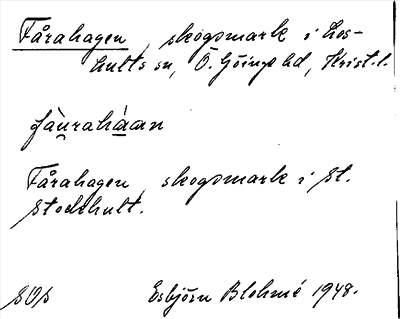 Fårahagen, skogsmark i Los-
hults sn, Ö. Göinge hd, Krist. l.
fàu̲rahà̲an
Fårahagen, skogsmark i St.
Stockhult.
SOs Esbjörn Blohmé 1948.